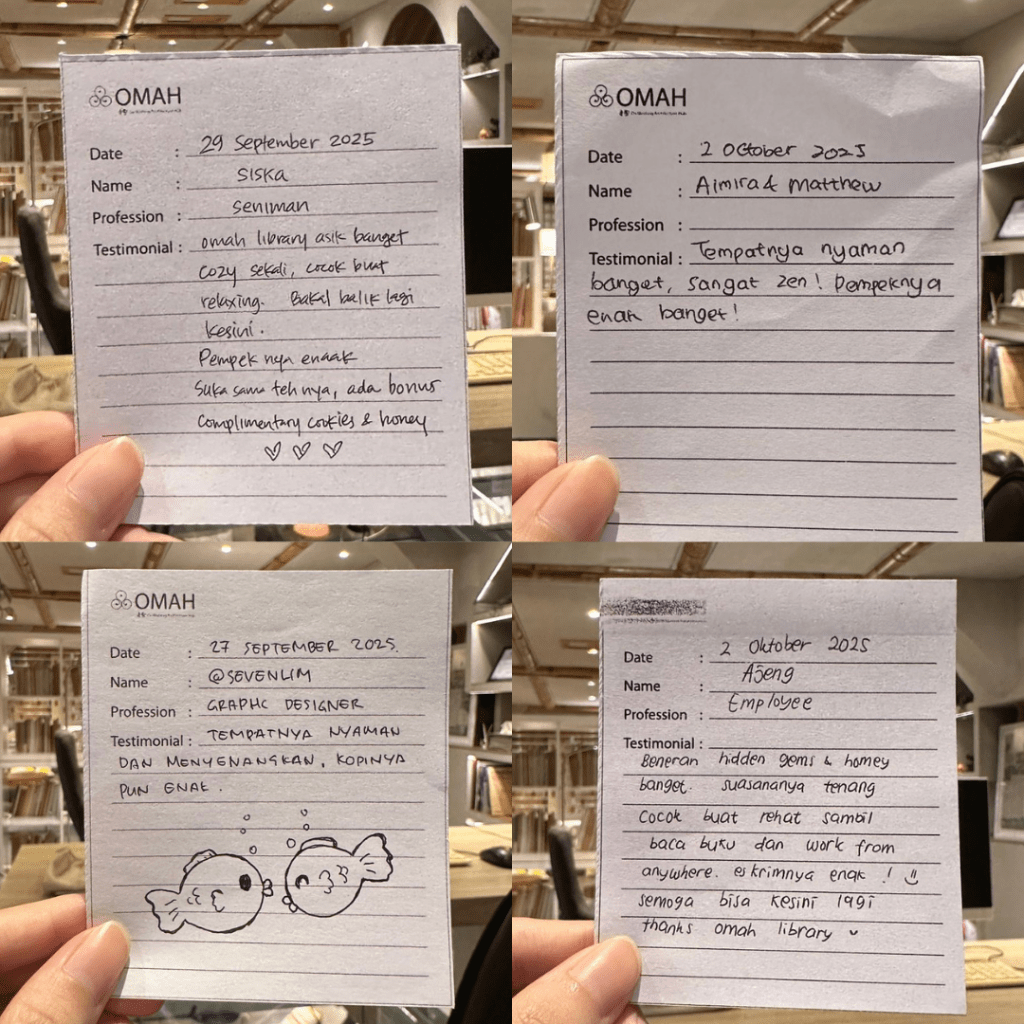 OMAH
Date : 29 September 2025
Name : SISKA
Profession : Seniman
Testimonial : omah library asik banget
cozy sekali, cocok buat
relaxing. Bakal balik lagi
kesini.
Pempek nya enaak
Suka sama teh nya, ada bonus
Complimentary cookies & honey
OMAH
Date : 2 October 2025
Name : Aimira & Matthew
Profession :
Testimonial : Tempatnya nyaman
banget, sangat zen! Pempeknya
enak banget!
OMAH
Date : 27 SEPTEMBER 2025.
Name : @SEVENLIM
Profession : GRAPHC DESIGNER
Testimonial : TEMPATNYA NYAMAN
DAN MENYENANGKAN, KOPINYA
PUN ENAK.
Date : 2 Oktober 2025
Name : Ajeng
Profession : Employee
Testimonial :
Beneran hidden gems & homey
banget. suasananya tenang
cocok buat rehat sambil
baca buku dan work from
anywhere. eskrimnya enak !
semoga bisa kesini lagi
thanks omah library